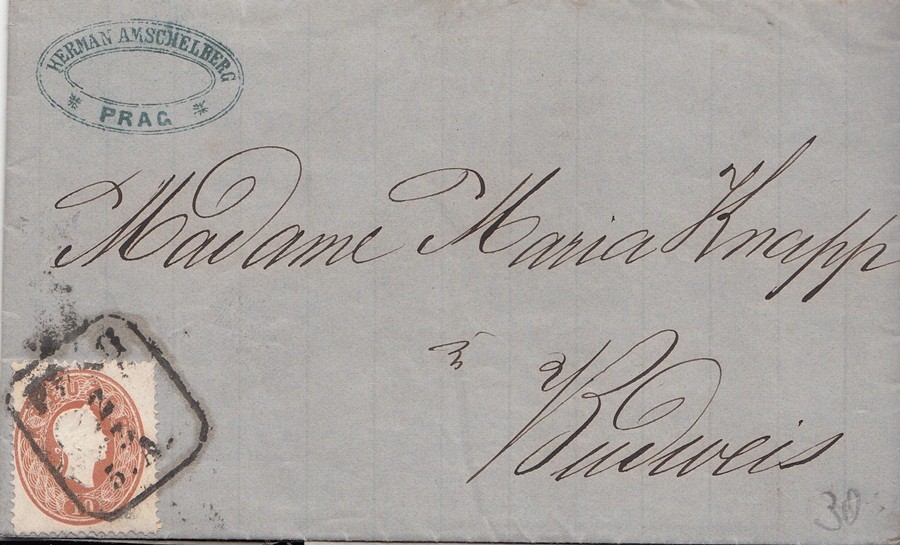 HERMAN AMSCHELBERG
PRAG
Madame Maria Knapp
à
Budweis
30